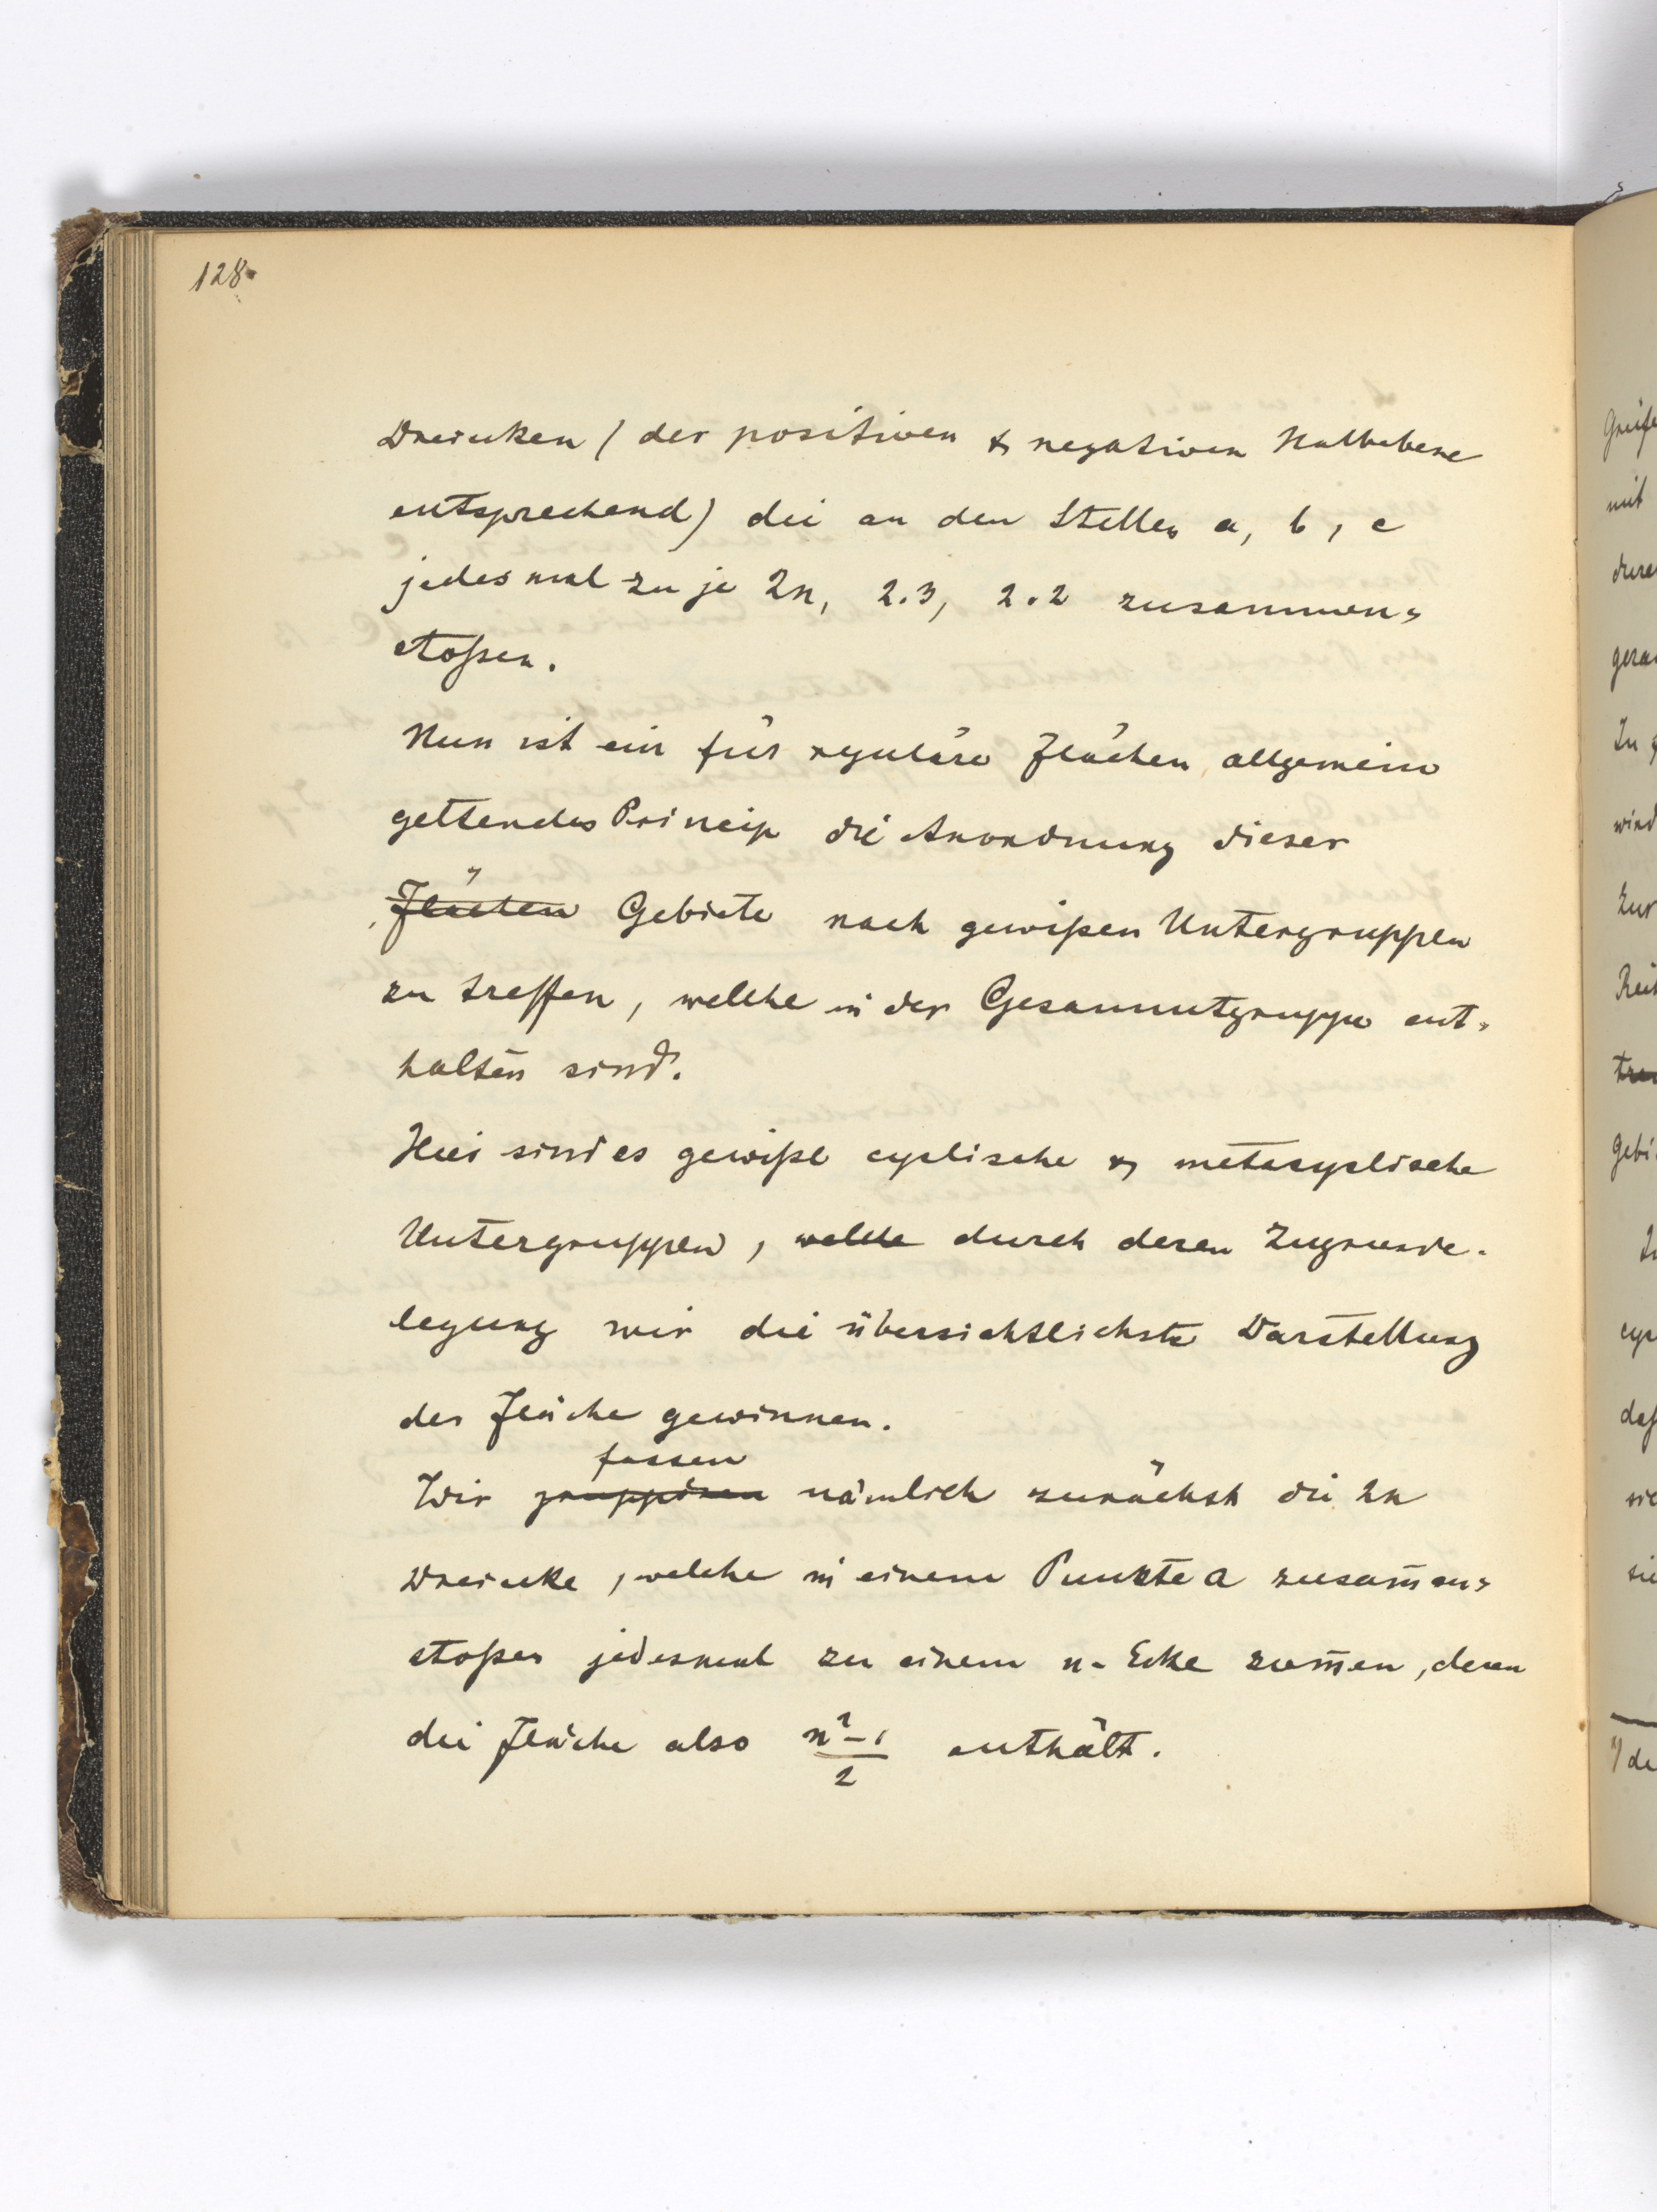 128.
Dreiecken (der positiven & negativen Halbebene
entsprechend) die an den Stellen a, b, c
jedesmal zu je 2n, 2.3, 2.2 zusammen-
stoßen.
Nun ist ein für reguläre Flächen allgemein
geltendes Princip die Anordnung dieser
Flächen Gebiete nach gewißen Untergruppen
zu treffen, welche in der Gesammtgruppe ent-
halten sind.
Hier sind es gewiße cyclische & metacyclische
Untergruppen, welche durch deren Zugrunde-
legung wir die übersichtlichste Darstellung
der Fläche gewinnen.
fassen
Wir gruppiren nämlich zunächst die 2n
Dreiecke, welche in einem Punkte a zusam̅en-
stoßen jedesmal zu einem n-Ecke zusam̅en, deren
die Fläche also n²-1/2 enthält.
Greife
mit
gera
In g
wird
Zur
Gebi
cyc
daß
sie
*) de